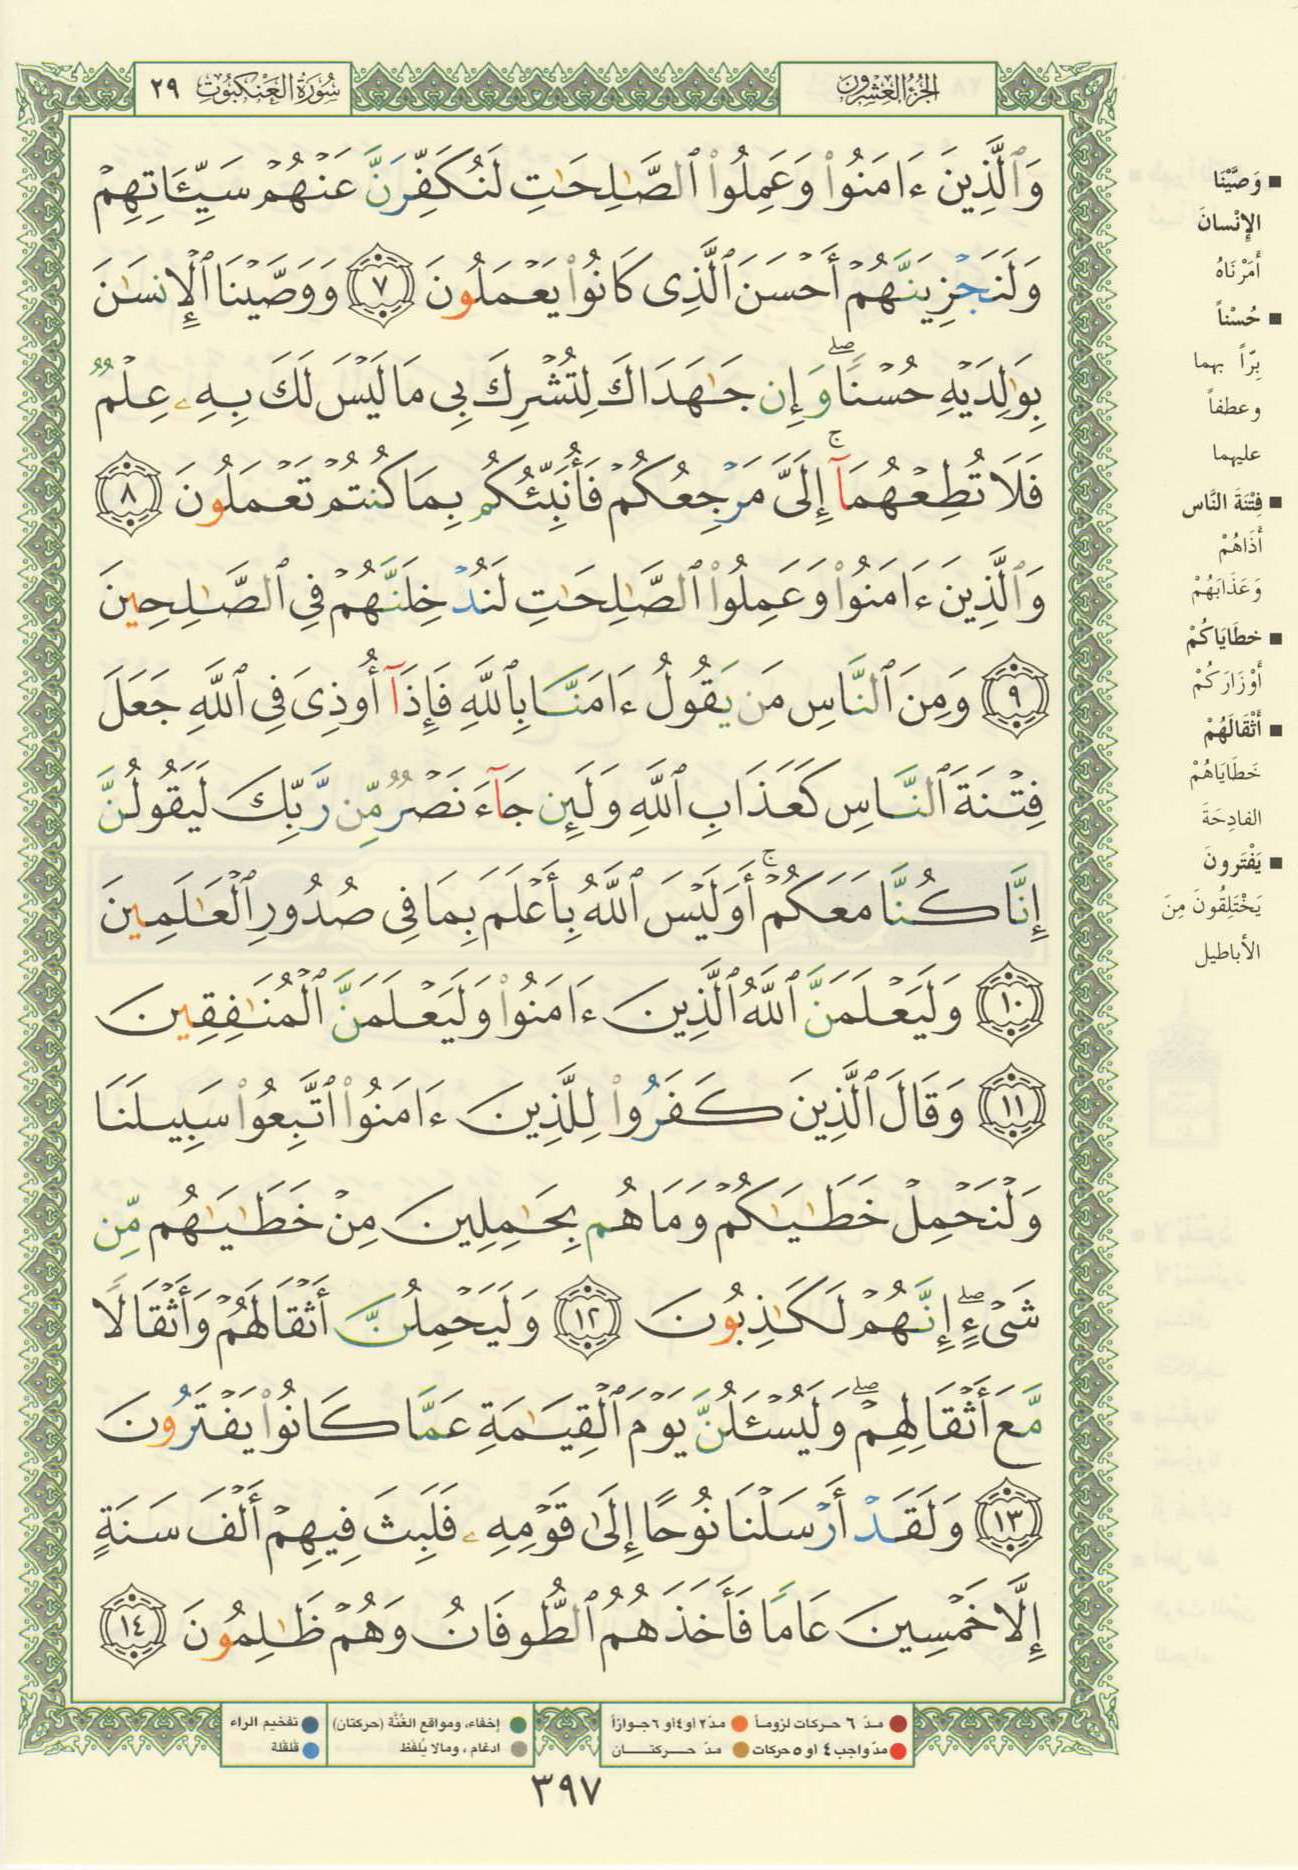 الجزء العشرون
سورة العنكبوت ٢٩
وَٱلَّذِينَ ءَامَنُوا۟ وَعَمِلُوا۟ ٱلصَّٰلِحَٰتِ لَنُكَفِّرَنَّ عَنْهُمْ سَيِّـَٔاتِهِمْ
وَلَنَجْزِيَنَّهُمْ أَحْسَنَ ٱلَّذِى كَانُوا۟ يَعْمَلُونَ ٧ وَوَصَّيْنَا ٱلْإِنسَٰنَ
بِوَٰلِدَيْهِ حُسْنًا ۖ وَإِن جَٰهَدَاكَ لِتُشْرِكَ بِى مَا لَيْسَ لَكَ بِهِۦ عِلْمٌ
فَلَا تُطِعْهُمَآ ۚ إِلَىَّ مَرْجِعُكُمْ فَأُنَبِّئُكُم بِمَا كُنتُمْ تَعْمَلُونَ ٨
وَٱلَّذِينَ ءَامَنُوا۟ وَعَمِلُوا۟ ٱلصَّٰلِحَٰتِ لَنُدْخِلَنَّهُمْ فِى ٱلصَّٰلِحِينَ
٩ وَمِنَ ٱلنَّاسِ مَن يَقُولُ ءَامَنَّا بِٱللَّهِ فَإِذَآ أُوذِىَ فِى ٱللَّهِ جَعَلَ
فِتْنَةَ ٱلنَّاسِ كَعَذَابِ ٱللَّهِ وَلَئِن جَآءَ نَصْرٌ مِّن رَّبِّكَ لَيَقُولُنَّ
إِنَّا كُنَّا مَعَكُمْ ۚ أَوَلَيْسَ ٱللَّهُ بِأَعْلَمَ بِمَا فِى صُدُورِ ٱلْعَٰلَمِينَ
١٠ وَلَيَعْلَمَنَّ ٱللَّهُ ٱلَّذِينَ ءَامَنُوا۟ وَلَيَعْلَمَنَّ ٱلْمُنَٰفِقِينَ
١١ وَقَالَ ٱلَّذِينَ كَفَرُوا۟ لِلَّذِينَ ءَامَنُوا۟ ٱتَّبِعُوا۟ سَبِيلَنَا
وَلْنَحْمِلْ خَطَٰيَٰكُمْ وَمَا هُم بِحَٰمِلِينَ مِنْ خَطَٰيَٰهُم مِّن
شَىْءٍ ۖ إِنَّهُمْ لَكَٰذِبُونَ ١٢ وَلَيَحْمِلُنَّ أَثْقَالَهُمْ وَأَثْقَالًا
مَّعَ أَثْقَالِهِمْ ۖ وَلَيُسْـَٔلُنَّ يَوْمَ ٱلْقِيَٰمَةِ عَمَّا كَانُوا۟ يَفْتَرُونَ
١٣ وَلَقَدْ أَرْسَلْنَا نُوحًا إِلَىٰ قَوْمِهِۦ فَلَبِثَ فِيهِمْ أَلْفَ سَنَةٍ
إِلَّا خَمْسِينَ عَامًا فَأَخَذَهُمُ ٱلطُّوفَانُ وَهُمْ ظَٰلِمُونَ ١٤
■ وَصَّيْنَا
الإِنْسانَ
أَمَرْنَاهُ
■ حُسْناً
بِرّاً بهما
وعطفاً
عليهما
■ فِتْنَةَ النَّاس
أَذَاهُمْ
وَعَذَابَهُمْ
■ خطَايَاكُمْ
أَوْزَارَكُمْ
■ أَثْقَالَهُمْ
خَطَايَاهُمْ
الفادِحَةَ
■ يَفْتَرونَ
يَخْتَلِقُونَ مِنَ
الأباطيل
مدّ ٦ حركات لزوماً مدّ ٢ أو ٤ أو ٦ جوازاً
مدّ واجب ٤ أو ٥ حركات مدّ حركتان
إخفاء، ومواقع الغُنَّة (حركتان) تفخيم الراء
ادغام، ومالا يُلفَظ قلقلة
٣٩٧